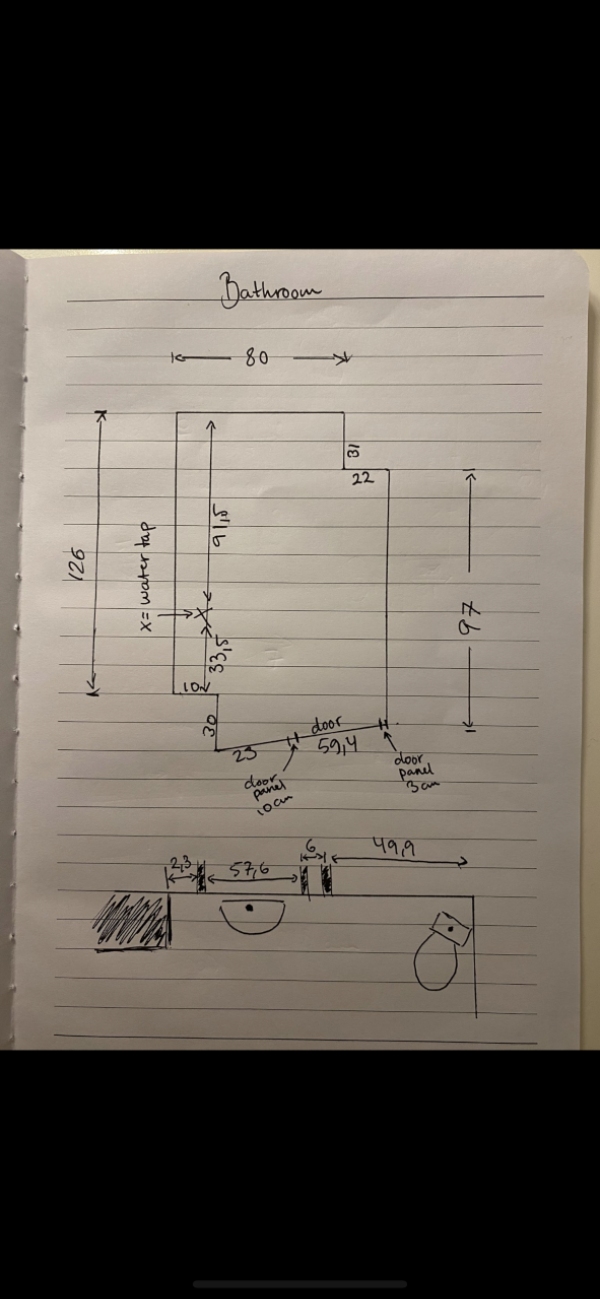 Bathroom
80
31
22
126
91,5
x = water tap
97
33,5
10
30
door
23
59,4
door
panel
10cm
door
panel
3cm
6
49,9
2,3
57,6